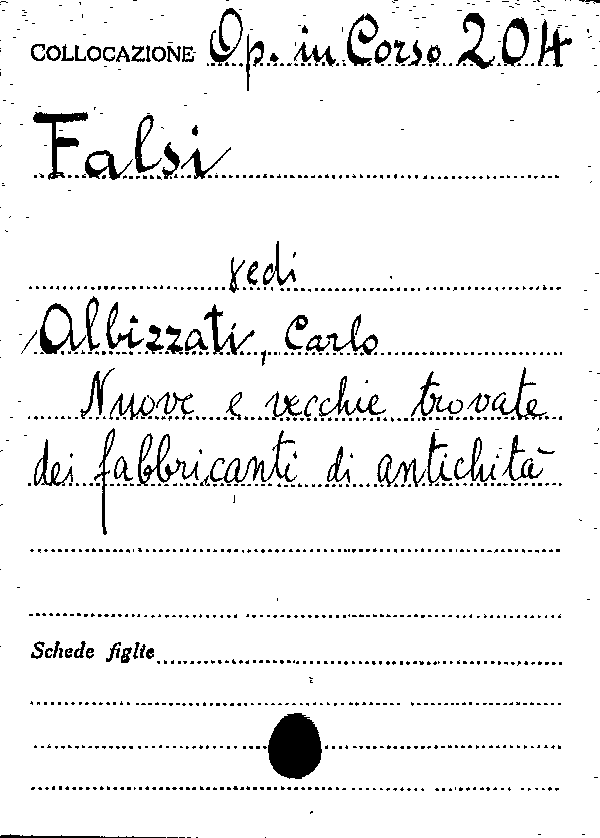 COLLOCAZIONE Op. in Corso 204
Falsi
vedi
Albizzati, Carlo
Nuove e vecchie trovate
dei fabbricanti di antichità
Schede figlie